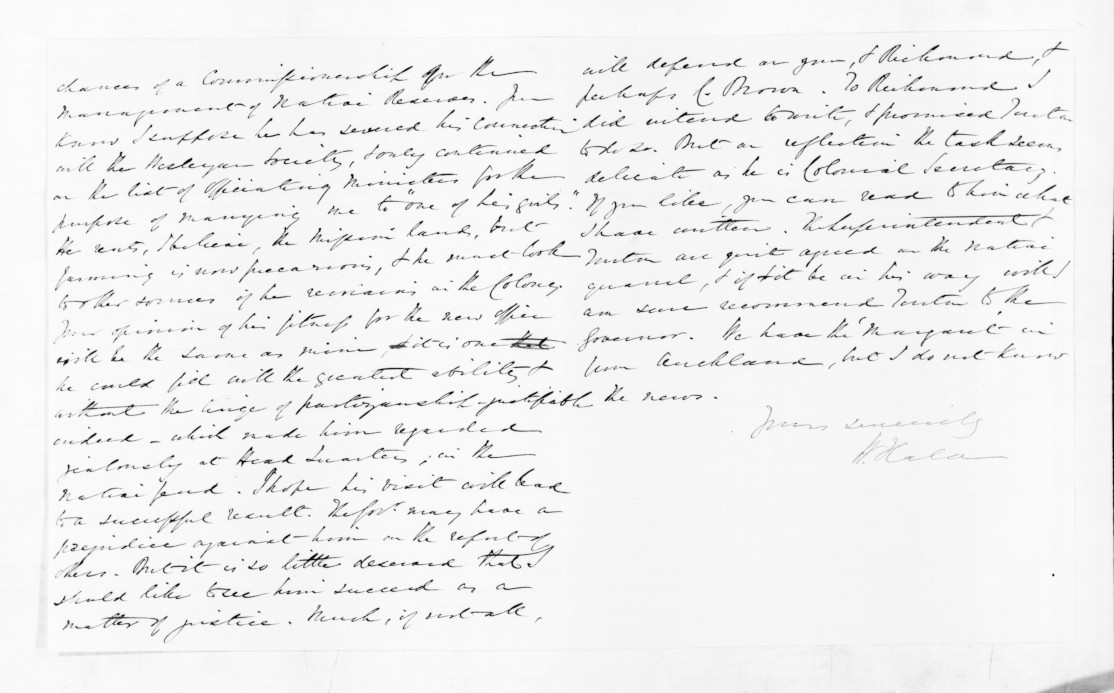 chances of a Commissionership for the
Management of Native Reserves. You
know I suppose he has severed his connection
with the Wesleyan Society, & only continued
on the list of Officiating Ministers for the
purpose of marrying me to "one of his girls."
He rents, I believe, the Mission lands, but
farming is now precarious, & he must look
to other sources if he remains in the Colony.
Your opinion of his fitness for the new office
will be the same as mine, & it is one that
he could fill with the greatest ability &
without the tinge of partizanship - justifiable
indeed - which made him regarded
jealously at Head Quarters, in the
native feud. I hope his visit will lead
to a successful result. The Govr. may have a
prejudice against him on the report of
others. But it is so little deserved that I
should like to see him succeed as a
matter of justice. Much, if not all,
will depend on you, & Richmond, &
perhaps C. Brown. To Richmond I
did intend to write, & promised Turton
to do so. But on reflection the task seems
delicate as he is Colonial Secretary.
If you like, you can read to him what
I have written. The Superintendent &
Turton are quite agreed on the native
quarrel, & if it be in his way will I
am sure recommend Turton to the
Governor. We have the "Margaret" in
from Auckland, but I do not know
the news.
Yours sincerely
W. Halse